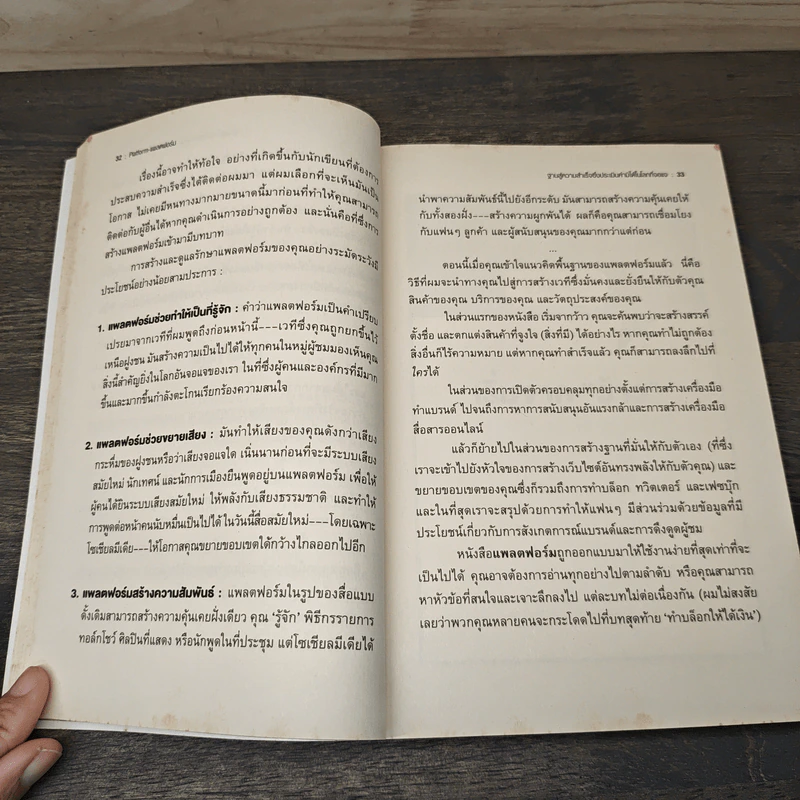 32 : Platform-แพลตฟอร์ม
เรื่องนี้อาจทำให้ท้อใจ อย่างที่เกิดขึ้นกับนักเขียนที่ต้องการ
ประสบความสำเร็จซึ่งได้ติดต่อผมมา แต่ผมเลือกที่จะเห็นมันเป็น
โอกาส ไม่เคยมีหนทางมากมายขนาดนี้มาก่อนที่ทำให้คุณสามารถ
ติดต่อกับผู้อื่นได้หากคุณดำเนินการอย่างถูกต้อง และนั่นคือที่ซึ่งการ
สร้างแพลตฟอร์มเข้ามามีบทบาท
การสร้างและดูแลรักษาแพลตฟอร์มของคุณอย่างระมัดระวังมี
ประโยชน์อย่างน้อยสามประการ :
1. แพลตฟอร์มช่วยทำให้เป็นที่รู้จัก : คำว่าแพลตฟอร์มเป็นคำเปรียบ
เปรยมาจากเวทีที่ผมพูดถึงก่อนหน้านี้---เวทีซึ่งคุณถูกยกขึ้นไว้
เหนือฝูงชน มันสร้างความเป็นไปได้ให้ทุกคนในหมู่ผู้ชมมองเห็นคุณ
สิ่งนี้สำคัญยิ่งในโลกอันจอแจของเรา ในที่ซึ่งผู้คนและองค์กรที่มีมาก
ขึ้นและมากขึ้นกำลังตะโกนเรียกร้องความสนใจ
2. แพลตฟอร์มช่วยขยายเสียง : มันทำให้เสียงของคุณดังกว่าเสียง
กระหึ่มของฝูงชนหรือว่าเสียงจอแจใด เนิ่นนานก่อนที่จะมีระบบเสียง
สมัยใหม่ นักเทศน์ และนักการเมืองยืนพูดอยู่บนแพลตฟอร์ม เพื่อให้
ผู้คนได้ยินระบบเสียงสมัยใหม่ ให้พลังกับเสียงธรรมชาติ และทำให้
การพูดต่อหน้าคนนับหมื่นเป็นไปได้ ในวันนี้สื่อสมัยใหม่---โดยเฉพาะ
โซเชียลมีเดีย---ให้โอกาสคุณขยายขอบเขตได้กว้างไกลออกไปอีก
3. แพลตฟอร์มสร้างความสัมพันธ์ : แพลตฟอร์มในรูปของสื่อแบบ
ดั้งเดิมสามารถสร้างความคุ้นเคยฝั่งเดียว คุณ ‘รู้จัก’ พิธีกรรายการ
ทอล์กโชว์ ศิลปินที่แสดง หรือนักพูดในที่ประชุม แต่โซเชียลมีเดียได้
33
นำพาความสัมพันธ์นี้ไปยังอีกระดับ มันสามารถสร้างความคุ้นเคยให้
กับทั้งสองฝั่ง---สร้างความผูกพันได้ ผลก็คือคุณสามารถเชื่อมโยง
กับแฟนๆ ลูกค้า และผู้สนับสนุนของคุณมากกว่าแต่ก่อน
...
ตอนนี้เมื่อคุณเข้าใจแนวคิดพื้นฐานของแพลตฟอร์มแล้ว นี่คือ
วิธีที่ผมจะนำทางคุณไปสู่การสร้างเวทีซึ่งมั่นคงและยั่งยืนให้กับตัวคุณ
สินค้าของคุณ บริการของคุณ และวัตถุประสงค์ของคุณ
ในส่วนแรกของหนังสือ เริ่มจากว้าว คุณจะค้นพบว่าจะสร้างสรรค์
ตั้งชื่อ และตกแต่งสินค้าที่จูงใจ (สิ่งที่มี) ได้อย่างไร หากคุณทำไม่ถูกต้อง
สิ่งอื่นก็ไร้ความหมาย แต่หากคุณทำสำเร็จแล้ว คุณก็สามารถลงลึกไปที่
ใครได้
ในส่วนของการเปิดตัวครอบคลุมทุกอย่างตั้งแต่การสร้างเครื่องมือ
ทำแบรนด์ ไปจนถึงการหาการสนับสนุนอันแรงกล้าและการสร้างเครื่องมือ
สื่อสารออนไลน์
แล้วก็ย้ายไปในส่วนของการสร้างฐานที่มั่นให้กับตัวเอง (ที่ซึ่ง
เราจะเข้าไปยังหัวใจของการสร้างเว็บไซต์อันทรงพลังให้กับตัวคุณ) และ
ขยายขอบเขตของคุณซึ่งก็รวมถึงการทำบล็อก ทวิตเตอร์ และเฟซบุ๊ก
และในที่สุดเราจะสรุปด้วยการทำให้แฟนๆ มีส่วนร่วมด้วยข้อมูลที่มี
ประโยชน์เกี่ยวกับการสังเกตการณ์แบรนด์และการดึงดูดผู้ชม
หนังสือแพลตฟอร์มถูกออกแบบมาให้ใช้งานง่ายที่สุดเท่าที่จะ
เป็นไปได้ คุณอาจต้องการอ่านทุกอย่างไปตามลำดับ หรือคุณสามารถ
หาหัวข้อที่สนใจและเจาะลึกลงไป แต่ละบทไม่ต่อเนื่องกัน (ผมไม่สงสัย
เลยว่าพวกคุณหลายคนจะกระโดดไปที่บทสุดท้าย ‘ทำบล็อกให้ได้เงิน’)